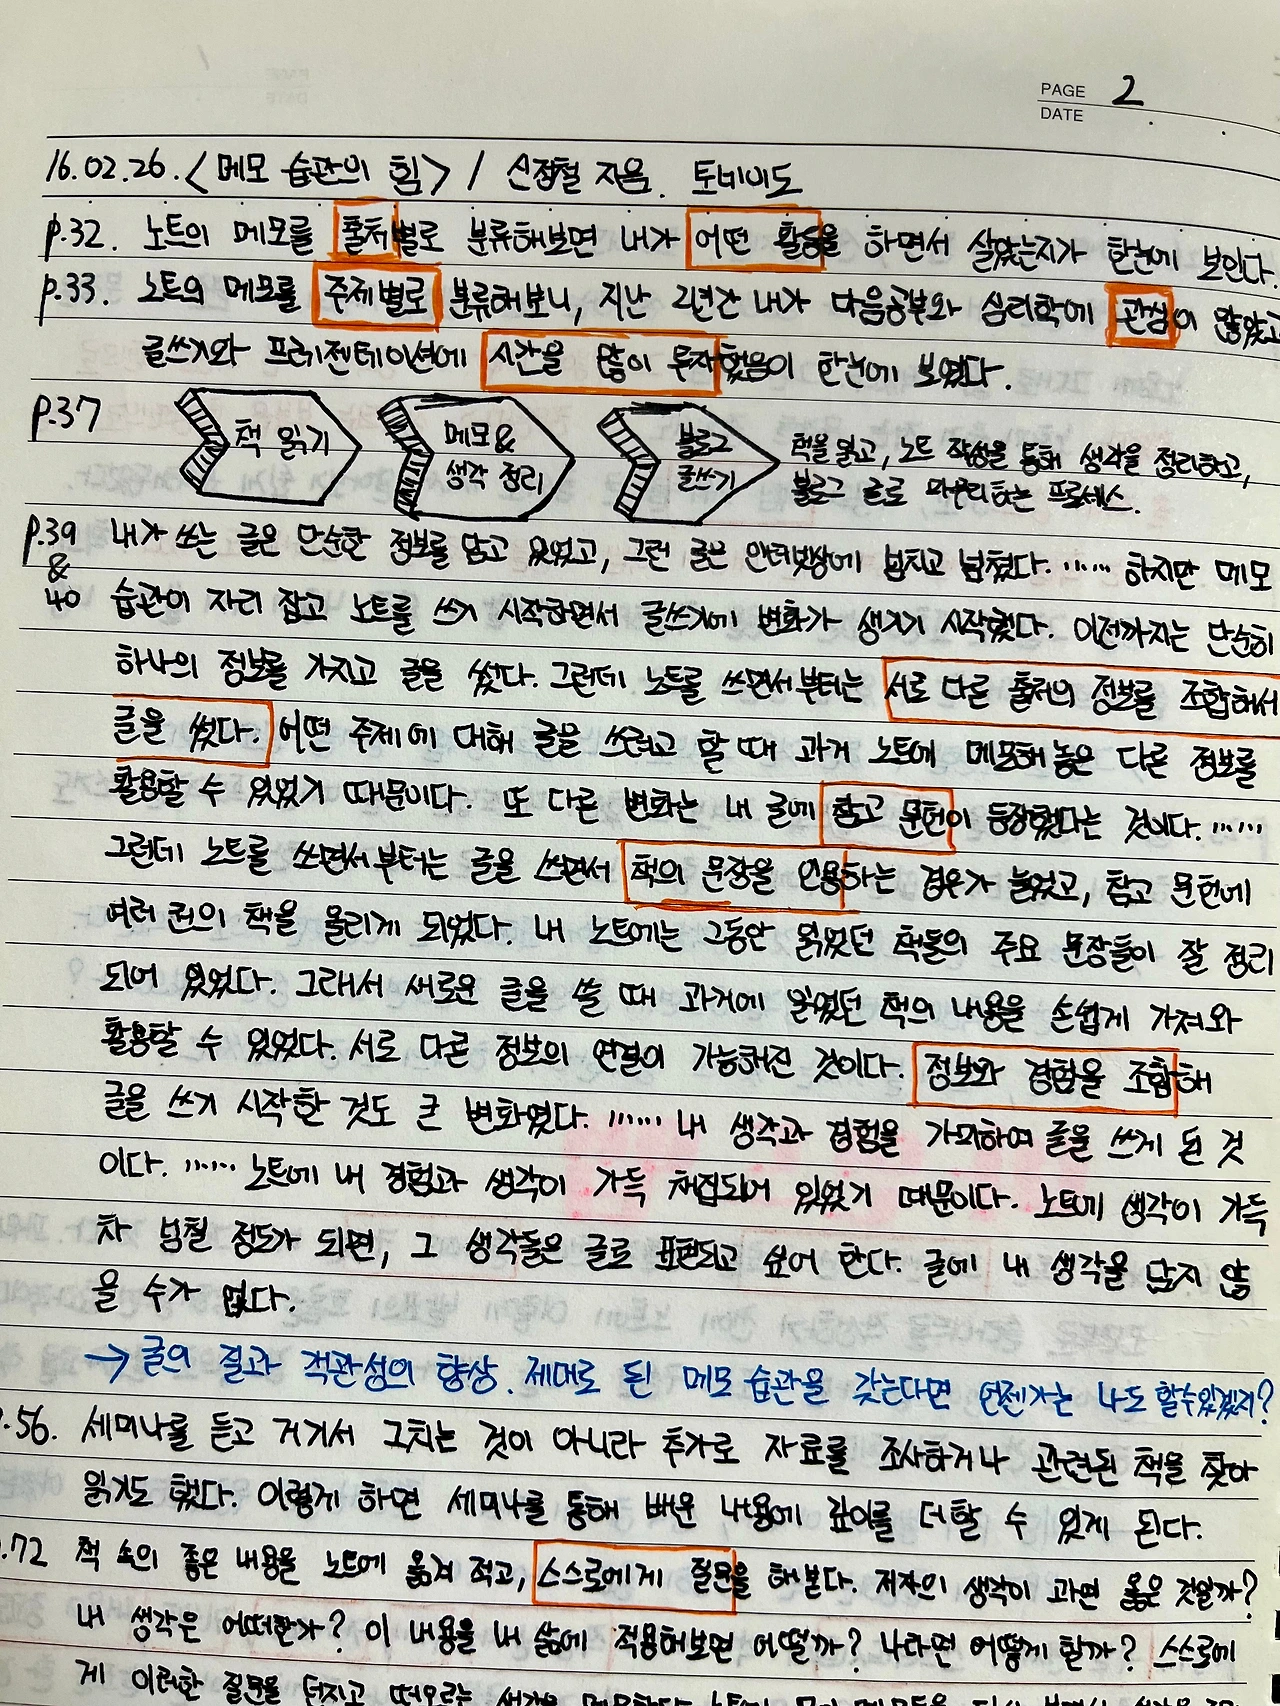 PAGE 2
DATE
16.02.26. <메모 습관의 힘> / 신정철 지음. 토네이도
p.32. 노트의 메모를 출처별로 분류해보면 내가 어떤 활동을 하면서 살았는지가 한눈에 보인다.
p.33. 노트의 메모를 주제별로 분류해보니, 지난 2년간 내가 마음공부와 심리학에 관심이 많았고
글쓰기와 프레젠테이션에 시간을 많이 투자했음이 한눈에 보였다.
p.37
책 읽기
메모 &
생각 정리
블로그
글쓰기
책을 읽고, 노트 작성을 통해 생각을 정리하고,
블로그 글로 마무리하는 프로세스.
p.39 내가 쓰는 글은 단순한 정보를 담고 있었고, 그런 글은 인터넷상에 넘치고 넘쳤다. …… 하지만 메모
&
40 습관이 자리 잡고 노트를 쓰기 시작하면서 글쓰기에 변화가 생기기 시작했다. 이전까지는 단순히
하나의 정보를 가지고 글을 썼다. 그런데 노트를 쓰면서부터는 서로 다른 출처의 정보를 조합해서
글을 썼다. 어떤 주제에 대해 글을 쓰려고 할 때 과거 노트에 메모해 놓은 다른 정보를
활용할 수 있었기 때문이다. 또 다른 변화는 내 글에 참고 문헌이 등장했다는 것이다. ……
그런데 노트를 쓰면서부터는 글을 쓰면서 책의 문장을 인용하는 경우가 늘었고, 참고 문헌에
여러 권의 책을 올리게 되었다. 내 노트에는 그동안 읽었던 책들의 주요 문장들이 잘 정리
되어 있었다. 그래서 새로운 글을 쓸 때 과거에 읽었던 책의 내용을 손쉽게 가져와
활용할 수 있었다. 서로 다른 정보의 연결이 가능해진 것이다. 정보와 경험을 조합해
글을 쓰기 시작한 것도 큰 변화였다. …… 내 생각과 경험을 가미하여 글을 쓰게 된 것
이다. …… 노트에 내 경험과 생각이 가득 채집되어 있었기 때문이다. 노트에 생각이 가득
차 넘칠 정도가 되면, 그 생각들은 글로 표현되고 싶어 한다. 글에 내 생각을 담지 않
을 수가 없다.
→ 글의 질과 객관성의 향상. 제대로 된 메모 습관을 갖는다면 언젠가는 나도 할 수 있겠지?
.56. 세미나를 듣고 거기서 그치는 것이 아니라 추가로 자료를 조사하거나 관련된 책을 찾아
읽기도 했다. 이렇게 하면 세미나를 통해 배운 내용에 깊이를 더할 수 있게 된다.
.72 책 속의 좋은 내용을 노트에 옮겨 적고, 스스로에게 질문을 해본다. 저자의 생각이 과연 옳은 것일까?
내 생각은 어떠한가? 이 내용을 내 삶에 적용해보면 어떨까? 나라면 어떻게 할까? 스스로에
게 이러한 질문을 던지고 떠오르는 생각을